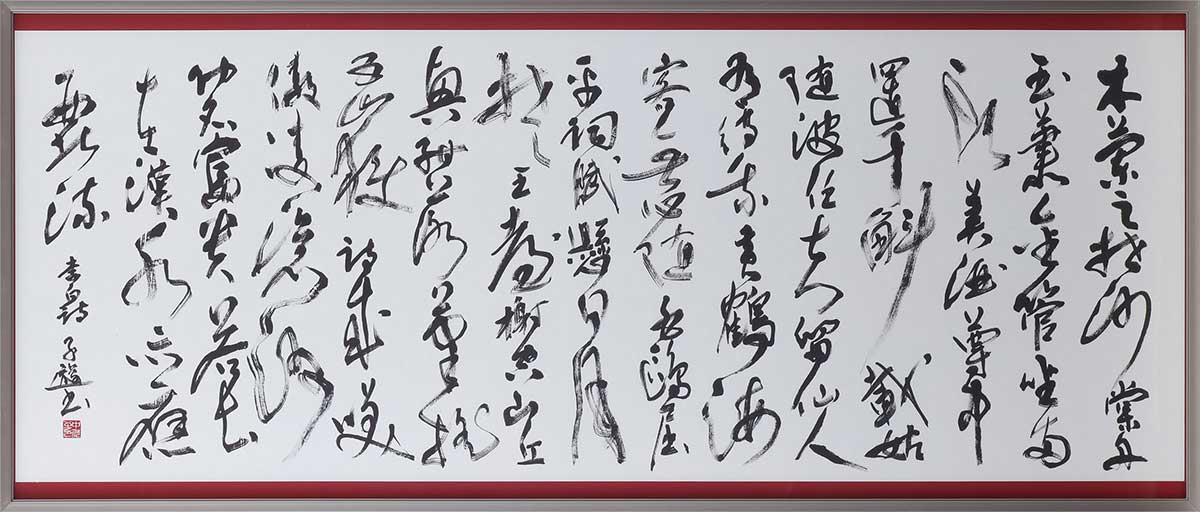 木蘭之枻沙棠舟
玉簫金管坐兩
頭美酒尊中
置千斛載妓
随波任去留仙人
有待乘黄鶴海
客無心随白鷗屈
平詞賦懸日月
楚王臺榭空山丘
興酣落筆摇
五嶽詩成笑
傲凌滄洲
功名富貴若長
在漢水亦應
西北流
李白詩